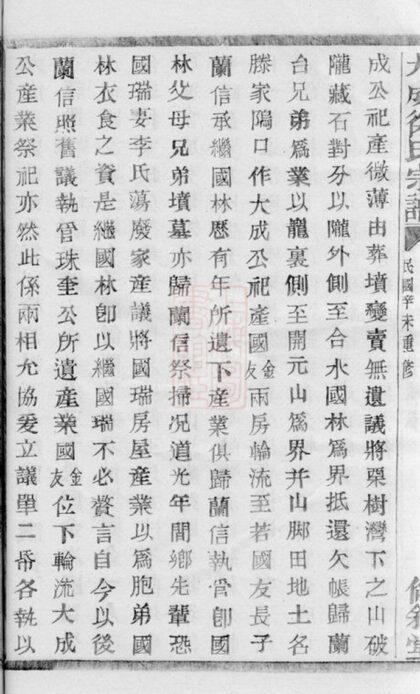 大成徐氏宗譜
民國辛未重修
成公祀產微薄由葬墳變賣無遺議將栗樹灣下之山破
隴藏石對分以隴外側至合水國林爲界抵還欠帳歸蘭
台兄弟爲業以隴裏側至開元山爲界并山脚田地土名
滕家隖口作大成公祀產國金友兩房輪流至若國友長子
蘭信承繼國林歷有年所遺下產業俱歸蘭信執管卽國
林父母兄弟墳墓亦歸蘭信祭掃况道光年間鄉先輩恐
國瑞妻李氏蕩廢家產議將國瑞房屋產業以爲胞弟國
林衣食之資是繼國林卽以繼國瑞不必贅言自今以後
蘭信照舊議執管珠奎公所遺產業國金友位下輪流大成
公產業祭祀亦然此係兩相允協爰立議單二帋各執以